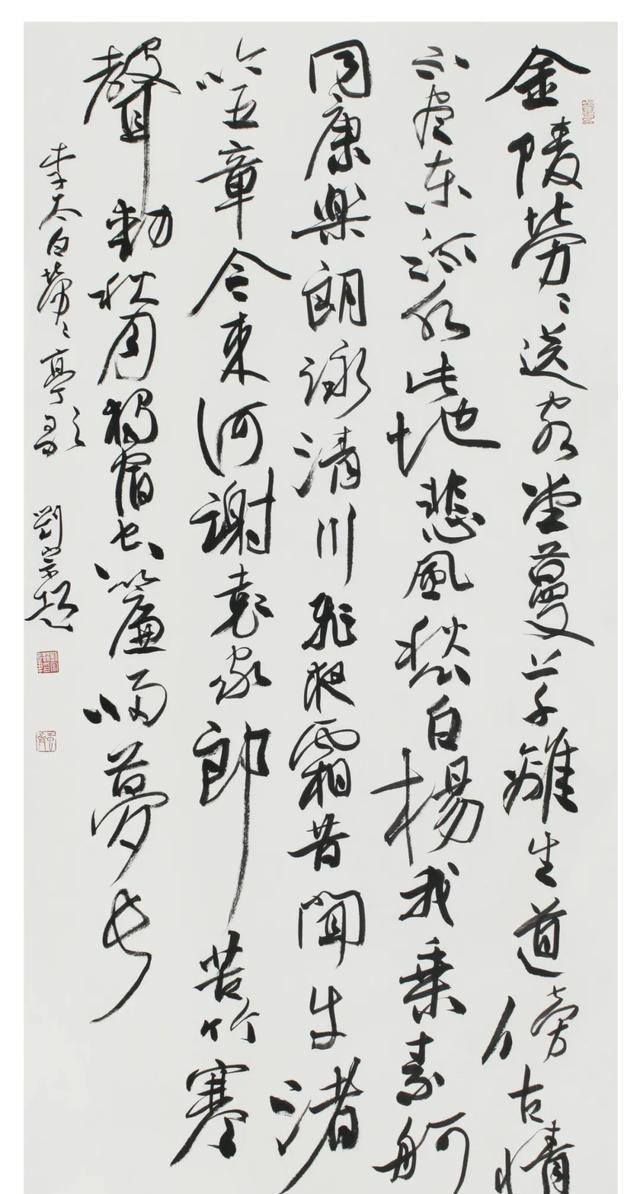 金陵勞〻送客堂蔓草離生道傍古情
不盡東流水此地悲風愁白楊我乘素舸
同康樂朗詠清川飛夜霜昔聞牛渚
吟五章今來何謝袁家郎苦竹寒
聲動秋月獨宿空簾歸夢長
李太白勞〻亭歌 劉宗超